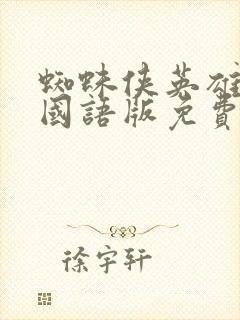 蜘蛛俠英雄
國語版免費
徐宇軒